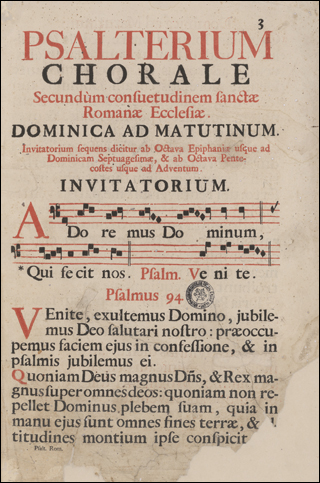 3
PSALTERIUM
CHORALE
Secundùm consuetudinem sanctæ
Romanæ Ecclesiæ.
DOMINICA AD MATUTINUM.
Invitatorium sequens dicitur ab Octava Epiphaniæ usque ad
Dominicam Septuagesimæ, & ab Octava Pente-
costes usque ad Adventum.
INVITATORIUM.
A Do re mus Do minum,
*Qui fecit nos. Psalm. Ve ni te.
Psalmus 94
VEnite, exultemus Domino, jubile-
mus Deo salutari nostro: præoccu-
pemus faciem ejus in confessione, & in
psalmis jubilemus ei.
Quoniam Deus magnus Dñs, & Rex ma-
gnus super omnes deos: quoniam non re-
pellet Dominus plebem suam, quia in
manu ejus sunt omnes fines terræ, &
titudines montium ipse conspicit
Psalt. Rom.